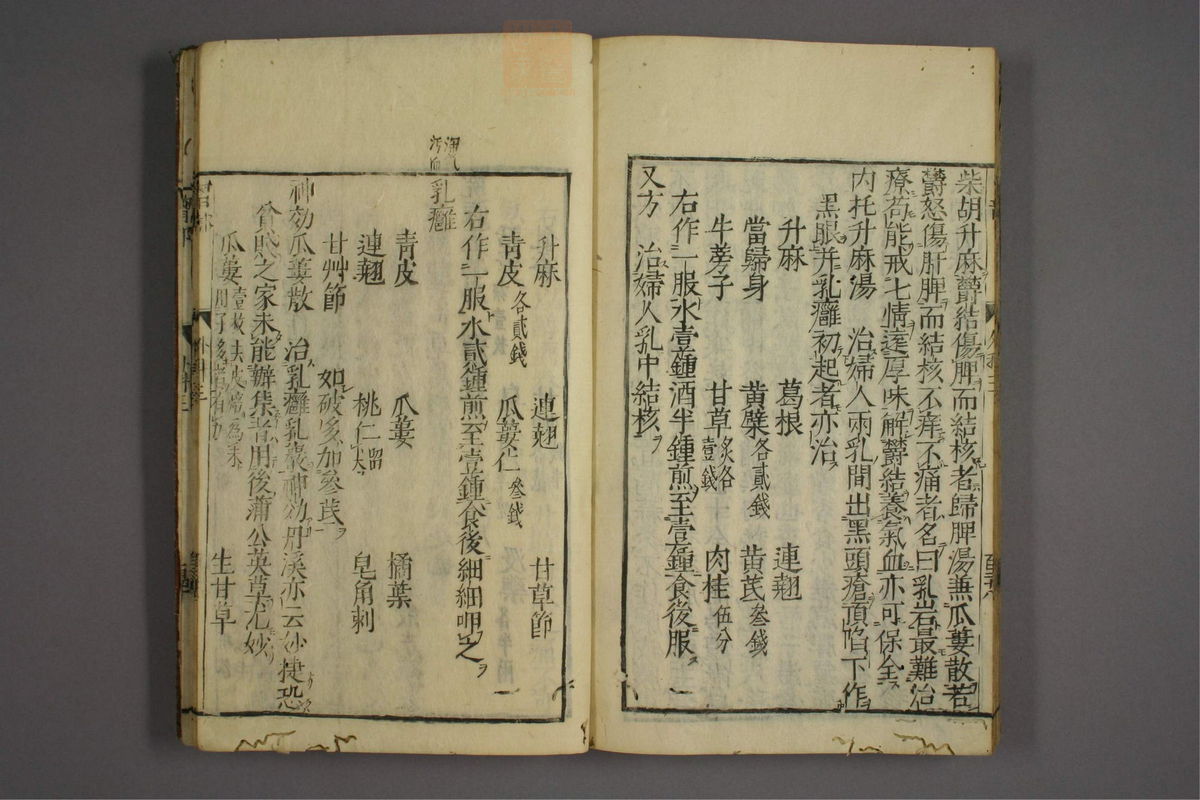 柴胡升麻欝結傷脾而結核者歸脾湯無瓜蔞散若
欝怒傷肝脾而結核不痒不痛者名曰乳岩最難治
療苟能戒七情遠厚味解欝結養氣血亦可保全
内托升麻湯 治婦人兩乳間出黑頭瘡頂陷下作
黑眼并乳癰初起者亦治
升麻 葛根 連翹
當歸身 黄檗各貳錢 黄芪叁錢
牛蒡子 甘草炙各壹錢 肉桂伍分
右作一服水壹鍾酒半鍾煎至壹鍾食後服
又方 治婦人乳中結核
升麻 連翹 甘草節
青皮各貳錢 瓜蔞仁叁錢
右作一服水貳鍾煎至壹鍾食後細細呷之
乳癰
青皮 瓜蔞 橘葉
連翹 桃仁留尖 皂角刺
甘艸節 如破多加參芪
神効瓜蔞散 治乳癰乳巖神効丹溪亦云妙捷恐
貧賤之家未能辦集者用後蒲公英草尤妙
瓜蔞 生甘草